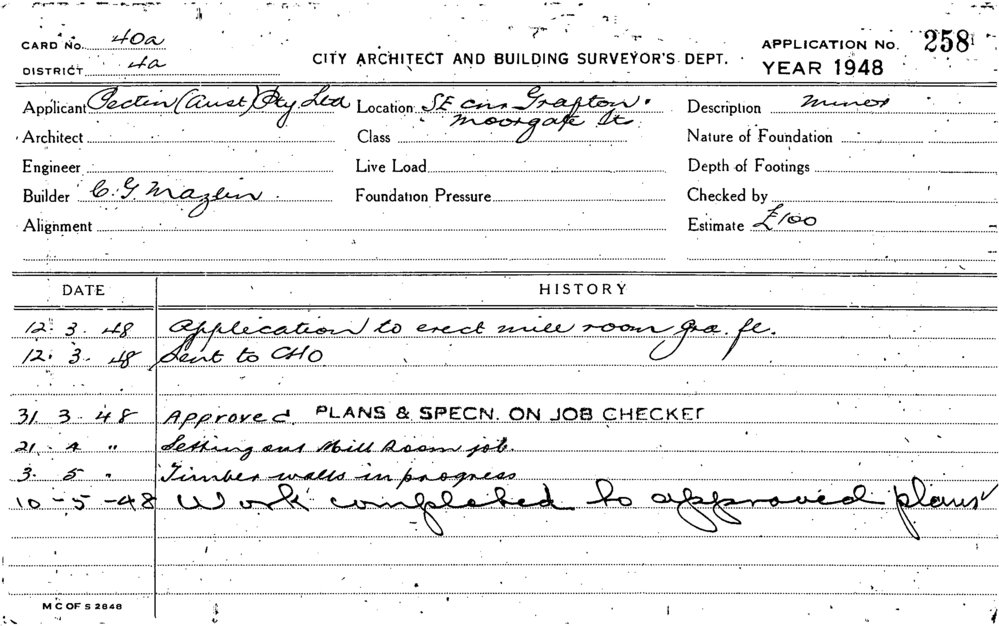 CARD No. 40a
DISTRICT 4a
CITY ARCHITECT AND BUILDING SURVEYOR'S DEPT.
APPLICATION No. 258
YEAR 1948
Applicant Pectin (Aust) Pty Ltd Location SE cnr Grafton Description Minor
Moorgate St
Architect Class Nature of Foundation
Engineer Live Load Depth of Footings
Builder C. G. Mazlin Foundation Pressure Checked by
Alignment Estimate £100
DATE HISTORY
12. 3. 48 Application to erect mill room gra. fl.
12. 3. 48 Sent to CHO
31. 3. 48 Approved PLANS & SPECN. ON JOB CHECKED
21. 4 " Setting out Mill Room job.
3. 5 " Timber walls in progress
10 - 5 - 48 Work completed to approved plans ✓
M C OF S 2848